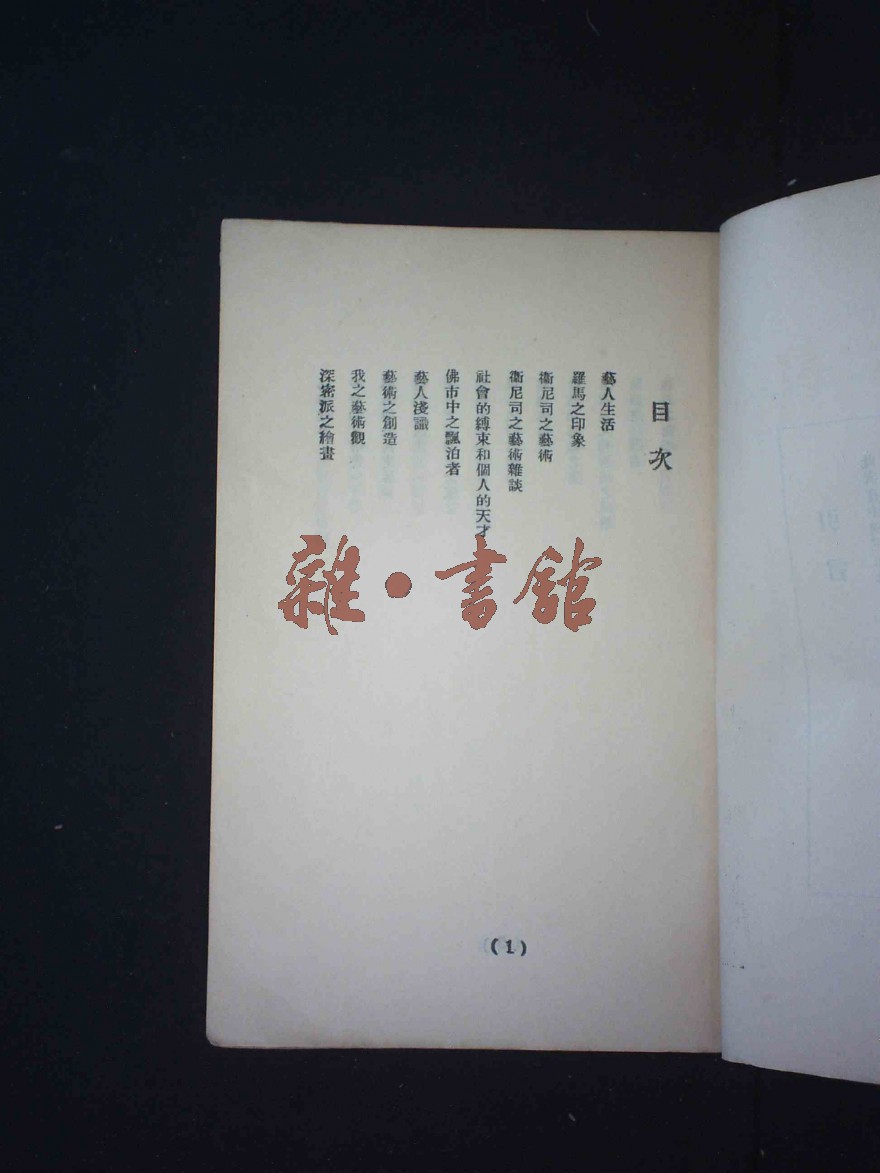 目次
藝人生活
羅馬之印象
衞尼司之藝術
衞尼司之藝術雜談
社會的縛束和個人的天才
佛市中之飄泊者
藝人淺識
藝術之創造
我之藝術觀
深密派之繪畫
雜·書館
(1)